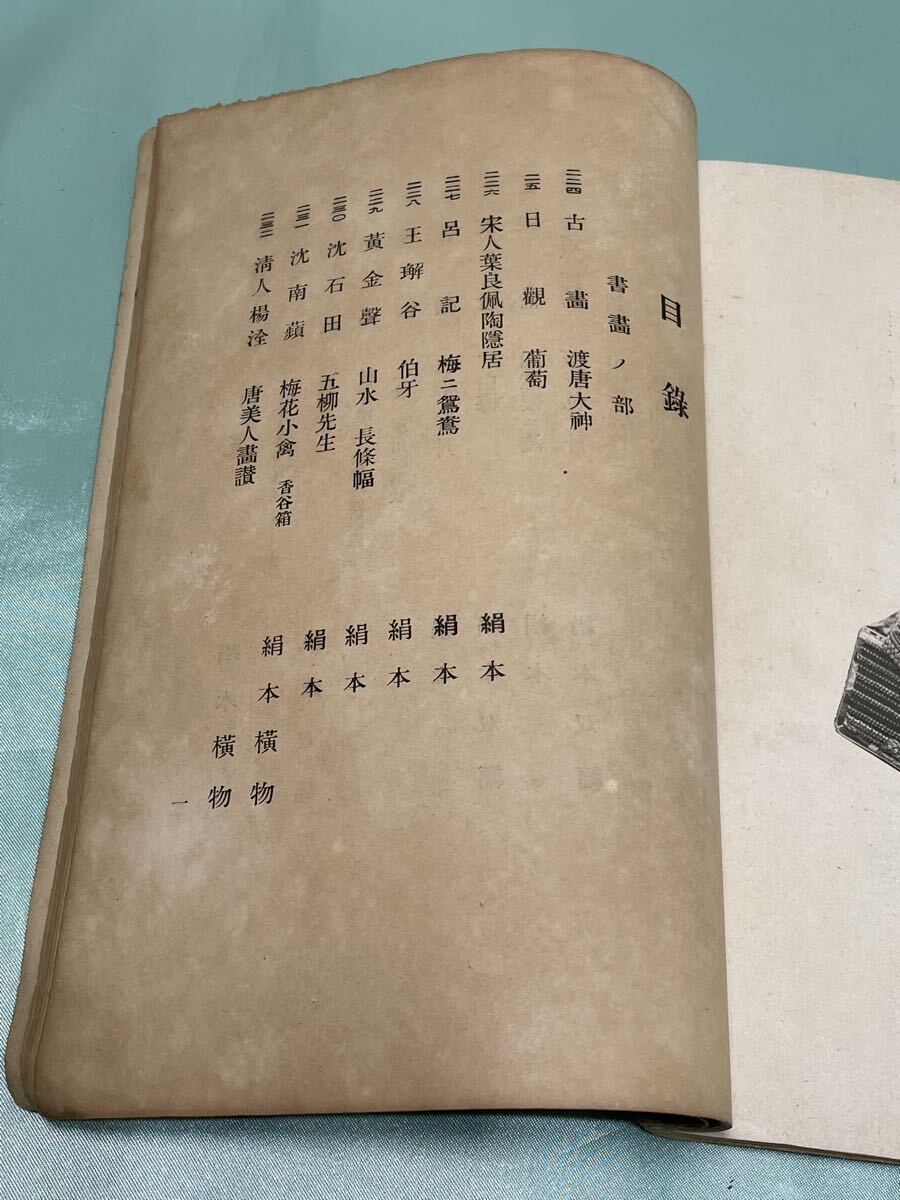 目錄
書畫ノ部
二二四 古畫 渡唐大神
二二五 日觀 葡萄
二二六 宋人葉良佩陶隱居 絹本
二二七 呂記 梅ニ鴛鴦 絹本
二二八 王㻰谷 伯牙 絹本
二二九 黃金聲 山水 長條幅 絹本
二三〇 沈石田 五柳先生 絹本
二三一 沈南蘋 梅花小禽 香谷箱 絹本橫物
二三二 淸人楊淦 唐美人畫讃 橫物
一